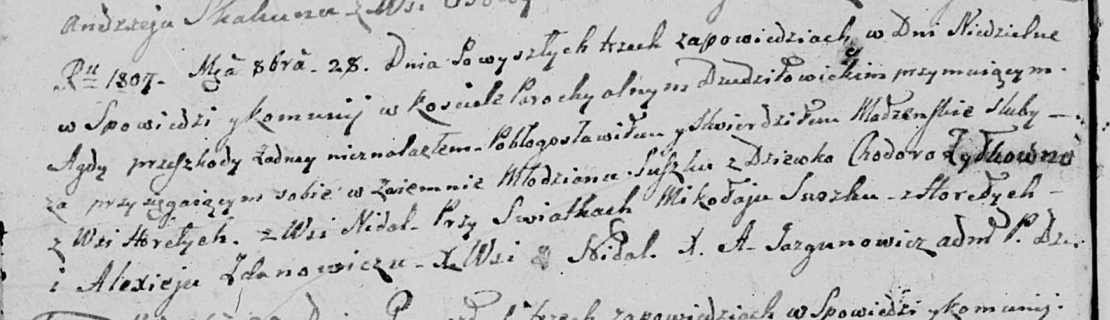 Andrzeja Skakuna z Wsi
Rū 1807- Mcã 8brã - 28. Dnia Po wyszłych trzech zapowiedziach y w Dni Niedzielne
w Spowiedzi y komunij w kosciele Parochyalnym Dzedziłowickim przymuiącym.
Agdy przeszkody żadney nieznalazłem - Pobłogosławiłem y stwierdziłem Małżenskie sluby -
za przysięgaiącym sobie wzaiemnie Młodziana Suszku z Dziewko Chodoro Zyłkowno
z Wsi Horełych. z Wsi Nidal - Przy Swiatkach Mikołaju Suszku - z Horełych -
i Alexieju Zdanowiczu - z Wsi Nidal. X. A. Jazgunowicz adm P. Dze.
trzech zapowiedziach w Spowiedzi y komunij.